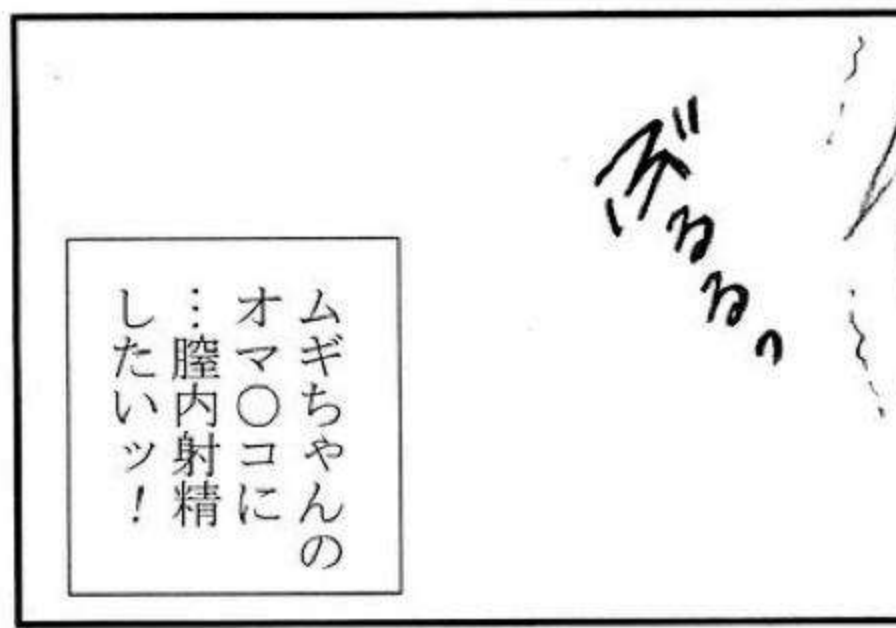 ぶるるっ
ムギちゃんの
オマ〇コに
…膣内射精
したいッ!